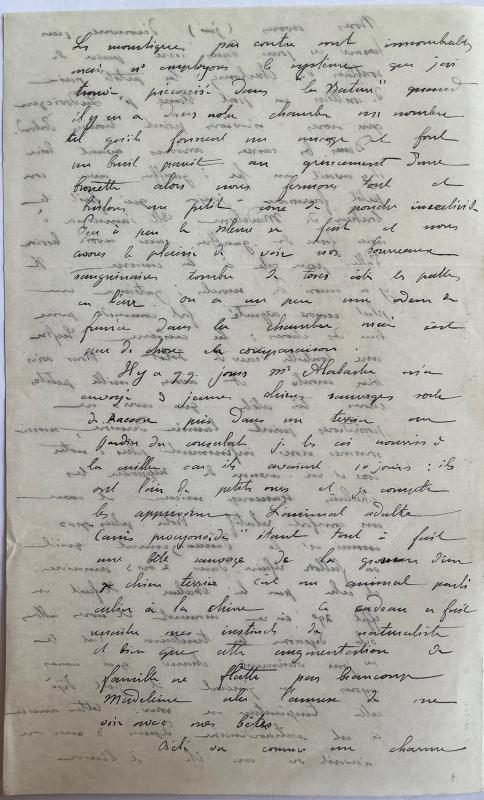 Les moustiques par contre sont innombrables
mais n. employons le systeme que j'ai
trouvé préconisé dans "la Nature" quand
il y en a dans notre chambre un nombre
tel qu'ils forment un nuage et font
un bruit pareil au grincement d'une
brouette alors nous fermons tout et
brûlons un petit cone de poudre insecticide
Peu à peu le silence se fait et nous
avons le plaisir de voir nos bourreaux
sanguinaires tomber de tous cotés les pattes
en l'air on a un peu une odeur de
dans la chambre mais c'est
peu de chose en comparaison.
Il y a q.q. jours Mr Alabaster m'a
envoyé 3 jeunes chiens sauvages sorte
de Racoon pris dans un terrier au
jardin du consulat je les ai nourris à
la cuiller car ils avaient 10 jours : ils
ont l'air de petits ours et je compte
les apprivoiser L'animal adulte
"Canis procyonoïdes" étant tout à fait
une bête sauvage de la grosseur d'un
chien terrier c'est un animal parti
culier à la chine Ce cadeau a fait
renaitre mes instincts de naturaliste
et bien que cette augmentation de
famille ne flatte pas beaucoup
Madeleine cela l'amuse de me
voir avec mes bêtes
Bébé va comme un charme